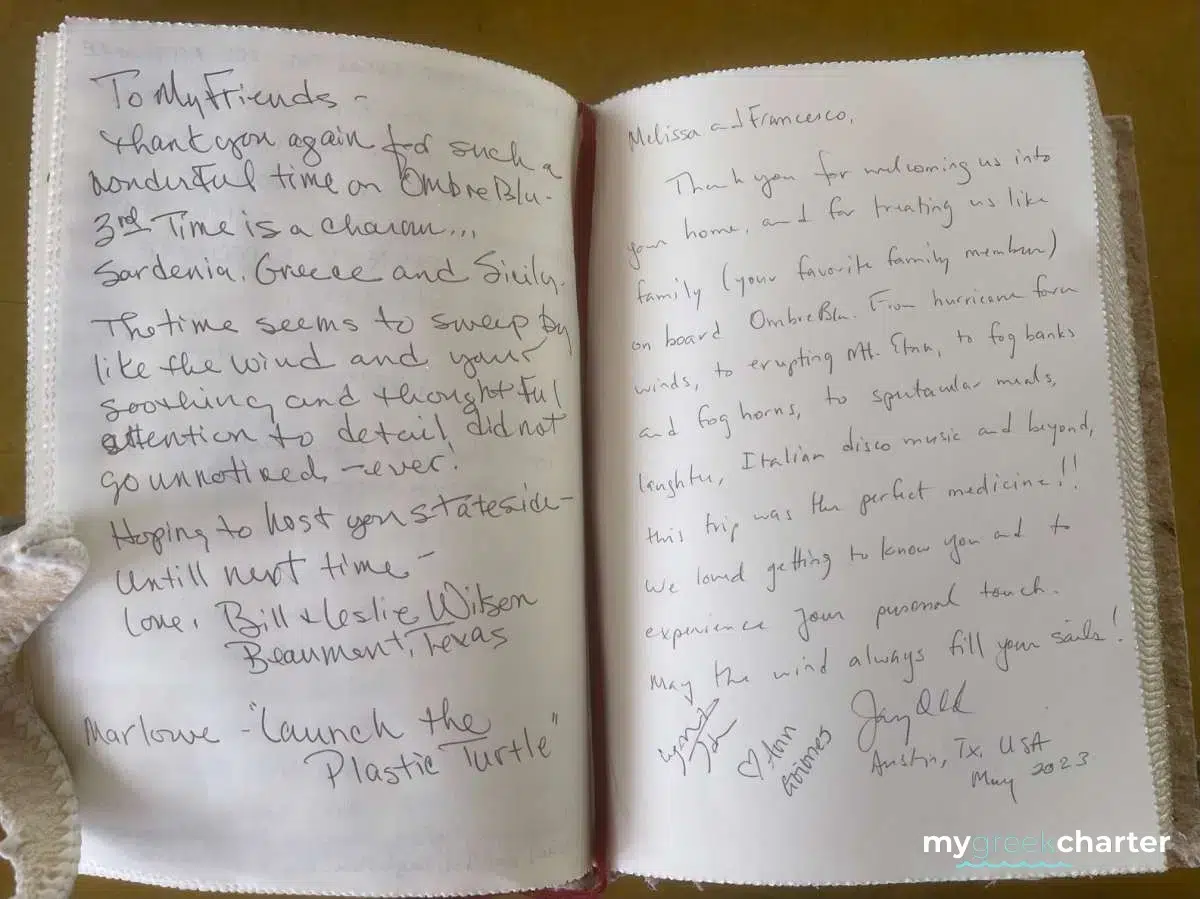 To My Friends -
thank you again for such a
wonderful time on OmbreBlu -
3rd Time is a charam...
Sardenia, Greece and Sicily.
The time seems to sweep by
like the wind and your
soothing and thoughtful
attention to detail, did not
go unnoticed - ever!
Hoping to host you stateside -
Untill next time -
Love, Bill & Leslie Wilson
Beaumont, Texas
Marlowe - "Launch the
Plastic Turtle"
Melissa and Francesco,
Thank you for welcoming us into
your home, and for treating us like
family (your favorite family members)
on board OmbreBlu. From hurricane force
winds, to erupting Mt. Etna, to fog banks
and fog horns, to spectacular meals,
laughter, Italian disco music and beyond,
this trip was the perfect medicine!!
We loved getting to know you and to
experience your personal touch.
May the wind always fill your sails!
Jay
♡ Ann
Grimes
Austin, Tx. USA
May 2023
mygreekcharter